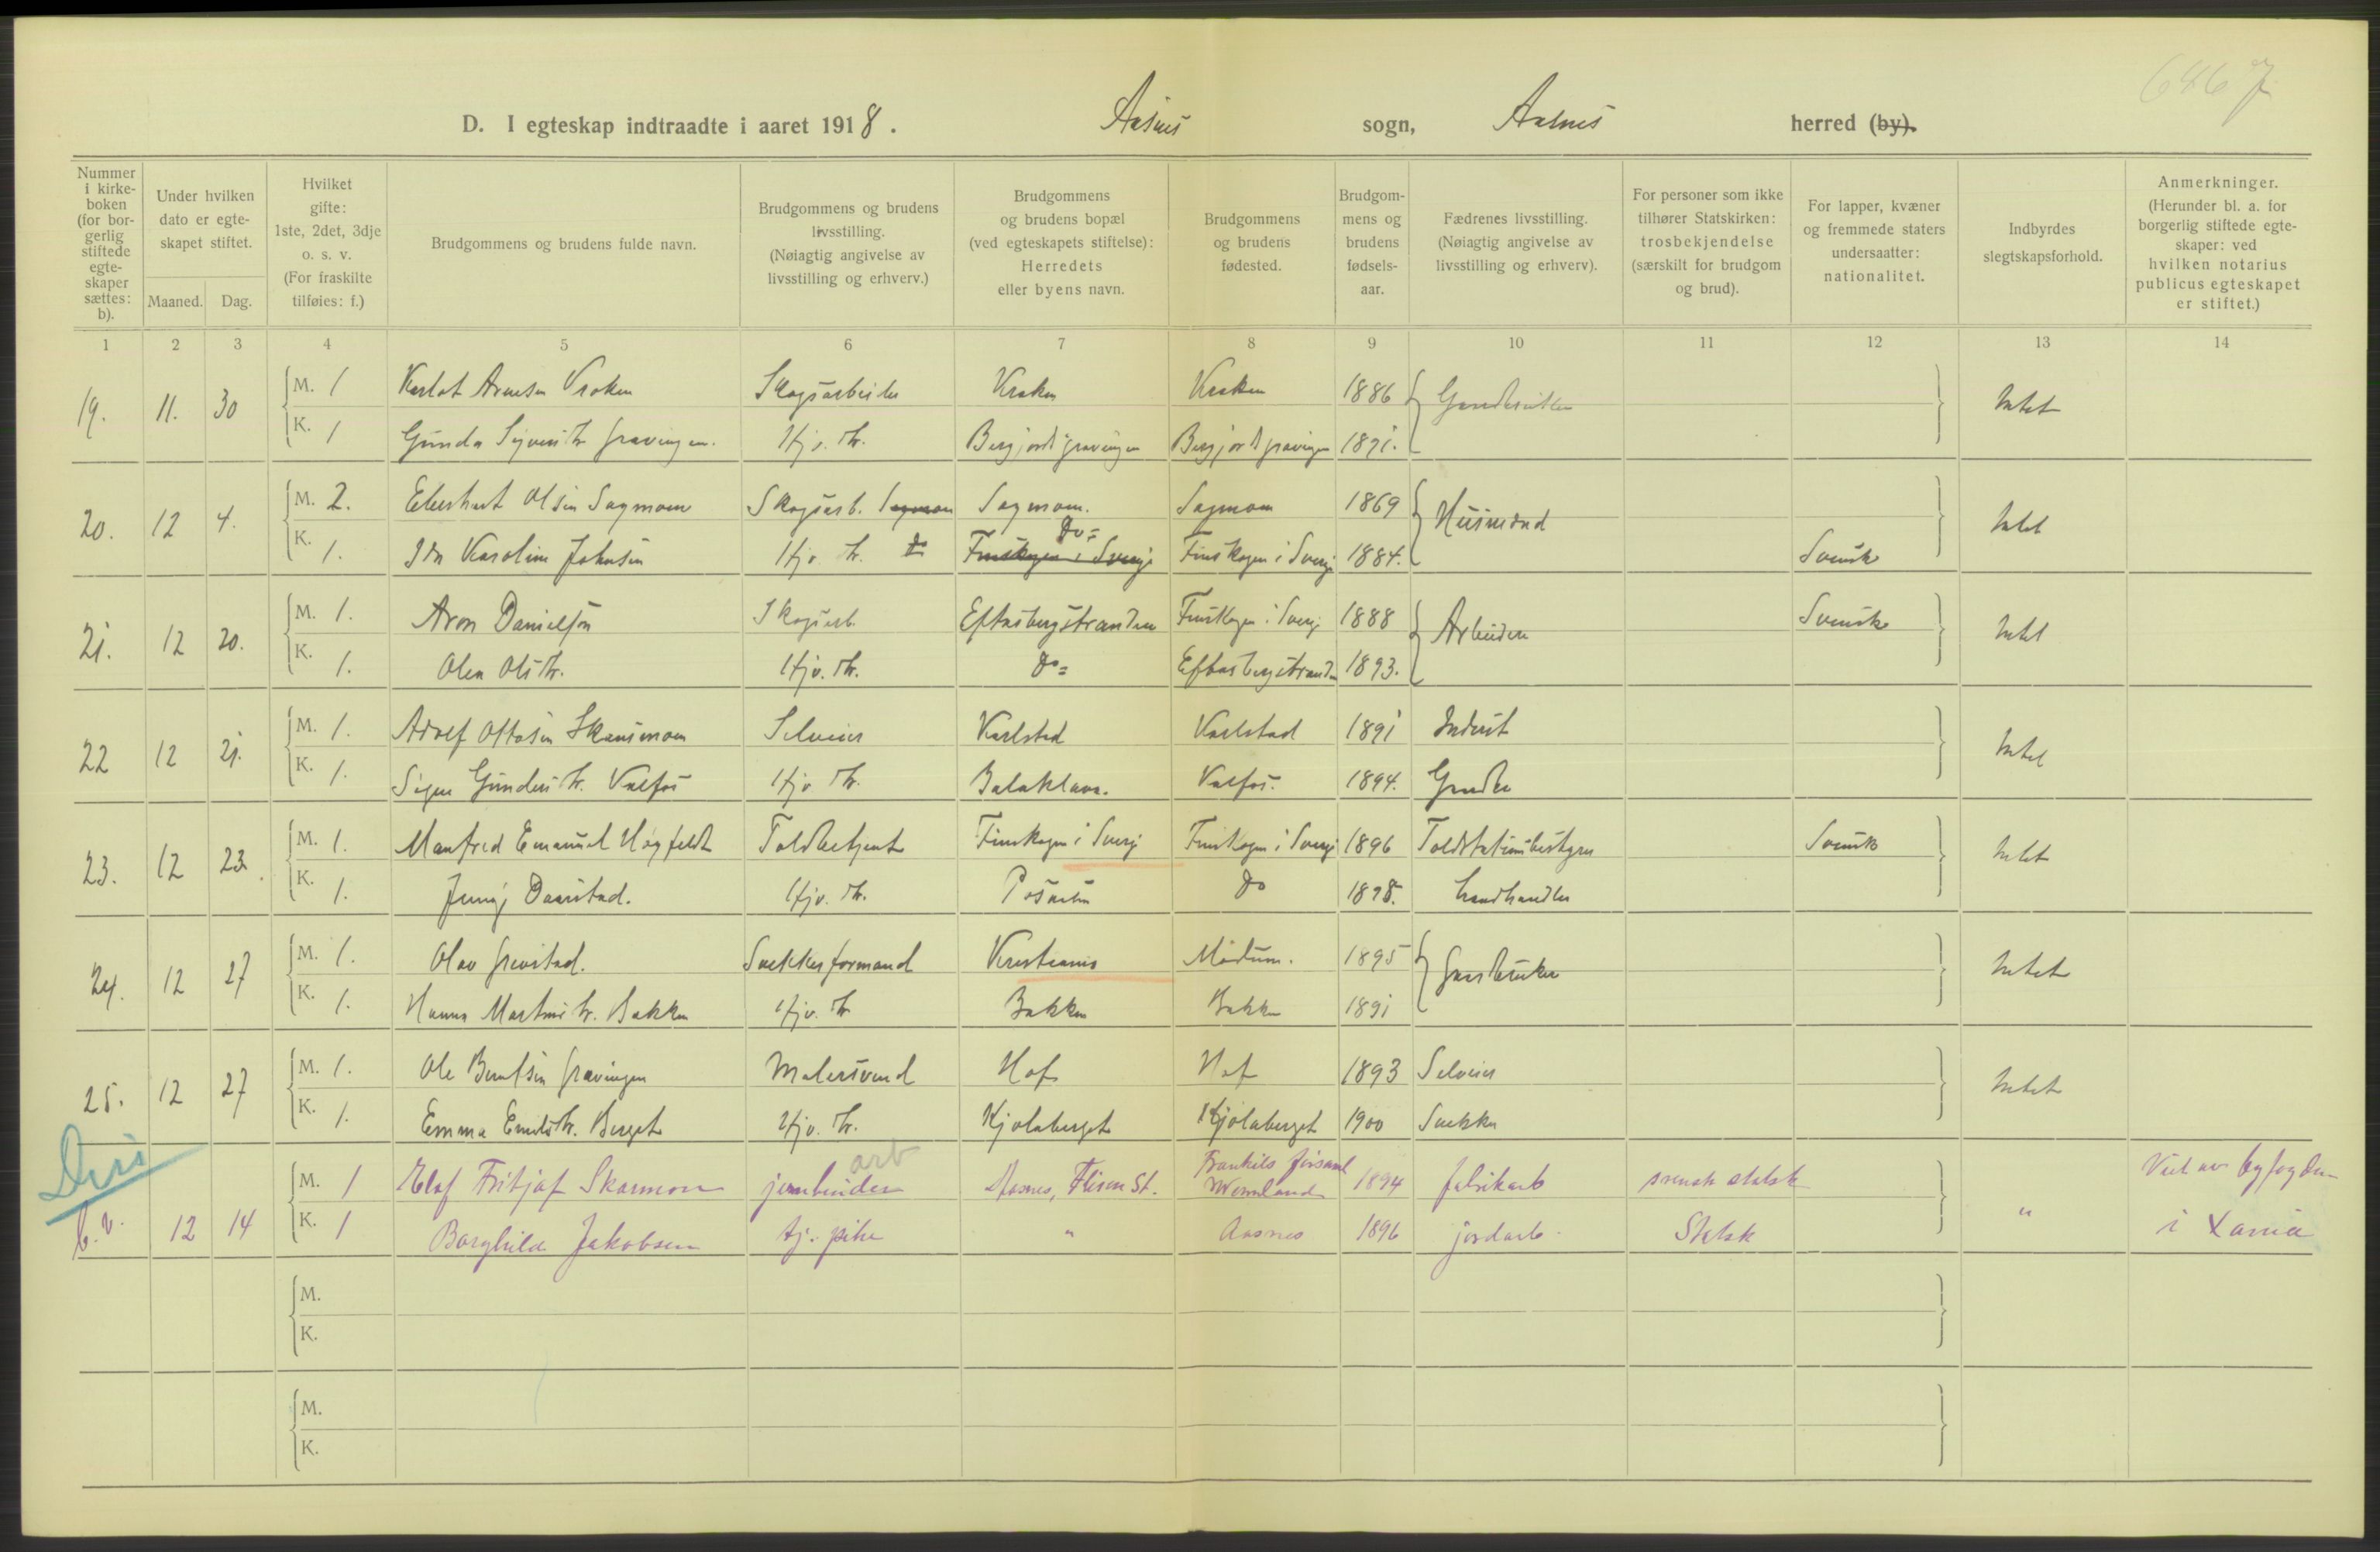 6467
D. I egteskap indtraadte i aaret 1918. Aasnes sogn, Aasnes herred (by).
Nummer i kirke-boken (for bor-gerlig stiftede egte-skaper sættes: b).
Under hvilken dato er egte-skapet stiftet.
Maaned. Dag.
Hvilket gifte: 1ste, 2det, 3dje o. s. v. (For fraskilte tilføies: f.)
Brudgommens og brudens fulde navn.
Brudgommens og brudens livsstilling. (Nøiagtig angivelse av livsstilling og erhverv.)
Brudgommens og brudens bopæl (ved egteskapets stiftelse): Herredets eller byens navn.
Brudgommens og brudens fødested.
Brudgom-mens og brudens fødsels-aar.
Fædrenes livsstilling. (Nøiagtig angivelse av livsstilling og erhverv).
For personer som ikke tilhører Statskirken: trosbekjendelse (særskilt for brudgom og brud).
For lapper, kvæner og fremmede staters undersaatter: nationalitet.
Indbyrdes slegtskapsforhold.
Anmerkninger. (Herunder bl. a. for borgerlig stiftede egte-skaper: ved hvilken notarius publicus egteskapet er stiftet.)
1 2 3 4 5 6 7 8 9 10 11 12 13 14
19. 11. 30 M. 1 Arnesen Skogsarbeider 1886 Intet
K. 1 Gunda Gravingen. Hjv. Dtr. Bergjordsgravingen Bergjordsgravingen 1891.
20. 12 4. M. 2. Olsen Sagmoen Skogsarb. Sagmoen Sagmoen. Sagmoen 1869 Husmænd Intet
K. 1. Ida Karoline Johnsen Hjv. Dtr. Do Finskogen i Sverige Do= Finskogen i Sverige 1884. Svensk
21. 12 20. M. 1. Aron Danielsen Skogsarb. Eftasbergstranden Finskogen i Sverig 1888 Arbeidere Svensk Intet
K. 1. Olea Olsdtr. Hjv. Dtr. Do= Eftasbergstranden 1893.
22 12 21. M. 1. Adolf Ottosen Skansmoen Selveier Karlstad Karlstad 1891 Inderst Intet
K. 1. Signe Gundersdtr. Valfos Hjv. Dtr. Balaklava. Valfos. 1894.
23. 12 23. M. 1. Manfred Emanuel Høgfeldt Toldbetjent Finskogen i Sverig Finskogen i Sverig 1896 Toldstationsbestyrer Svensk Intet
K. 1. Hjv. Dtr. Do 1898. Landhandler
24. 12 27 M. 1. Olav Grevstad. Snekkerformand Kristiania Modum. 1895 Gaardbruker Intet
K. 1. Hanna Martinsdtr. Bakken Hjv. Dtr Bakken Bakken 1891
25. 12 27 M. 1. Ole Berntsen Gravingen Malersvend Hof Hof 1893 Selveier Intet
K. 1. Emma Emilsdtr. Berget Hjv. Dtr. Kjølaberget Kjølaberget 1900 Snekker
b.v. 12 14 M. 1 Elof Fritjof Skarmon jernbinder arb Aasnes, Flisen St. Wermland 1894 fabrikarb svensk statsk " Viet av byfogden
K. 1 Borghild Jakobsen tj. pike " Aasnes 1896 jordarb. Statsk i Xania
M.
K.
M.
K.